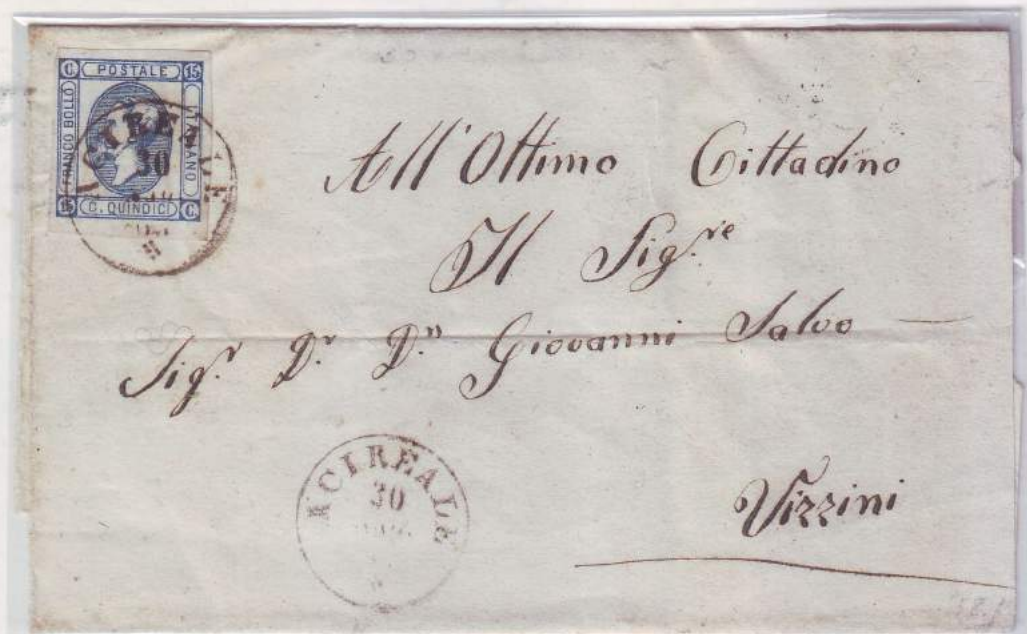 C. POSTALE 15
FRANCO BOLLO
ITALIANO
15 C. QUINDICI C.
ACIREALE
30
All' Ottimo Cittadino
Il Sig.re
Sig.r D.r D.n Giovanni Salvo
Vizzini
ACIREALE
30